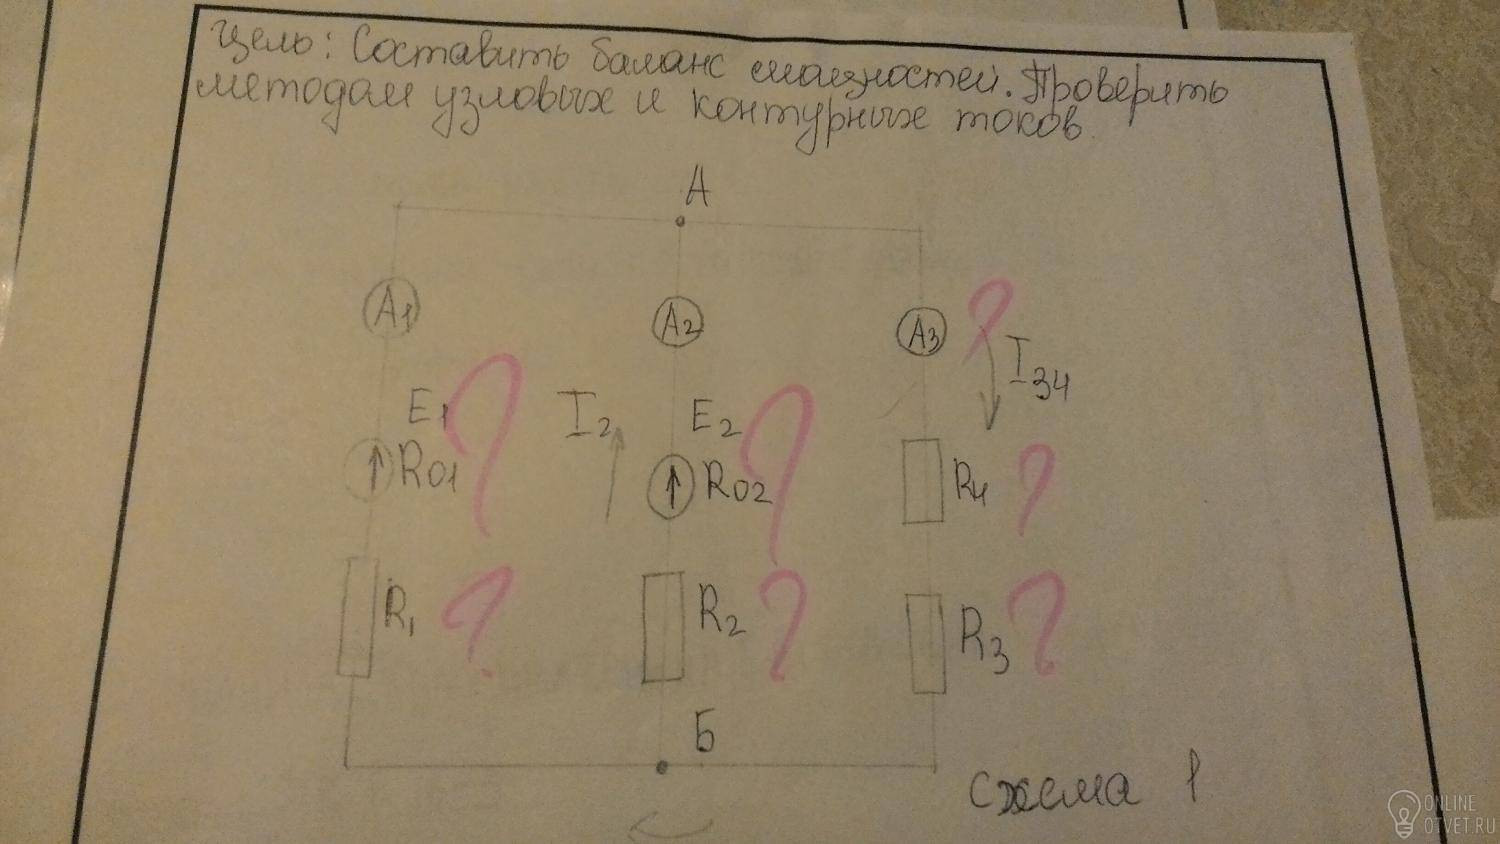 Цель: Составить баланс мощностей. Проверить
методом узловых и контурных токов.
А
А1
А2
А3
?
I34
E1
?
I2
E2
?
R01
R02
R4
?
R1
?
R2
?
R3
?
Б
Схема 1
ONLINE
OTVET.RU